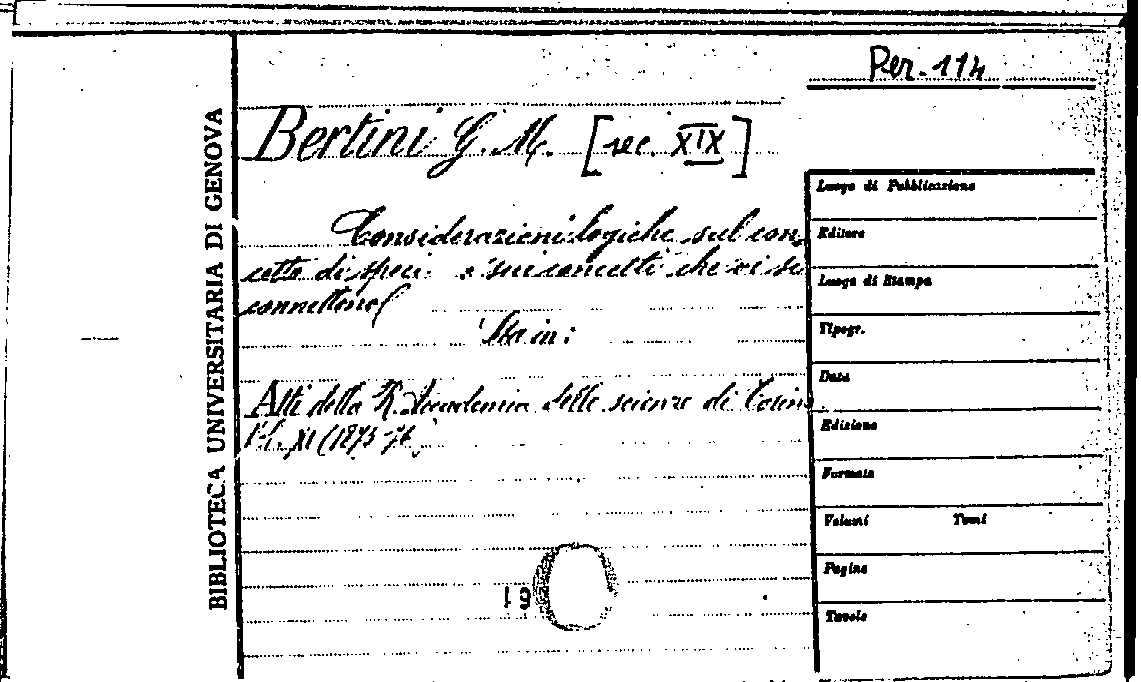 Per. 114
BIBLIOTECA UNIVERSITARIA DI GENOVA
Bertini G. M. [sec. XIX]
Considerazioni logiche sul con,
cetto di speci e sui concetti che vi si
connettono
Sta in:
Atti della R. Accademia delle scienze di Torino
Vol. XI (1875-76)
19
Luogo di Pubblicazione
Editore
Luogo di Stampa
Tipogr.
Data
Edizione
Formato
Volumi Tomi
Pagine
Tavole